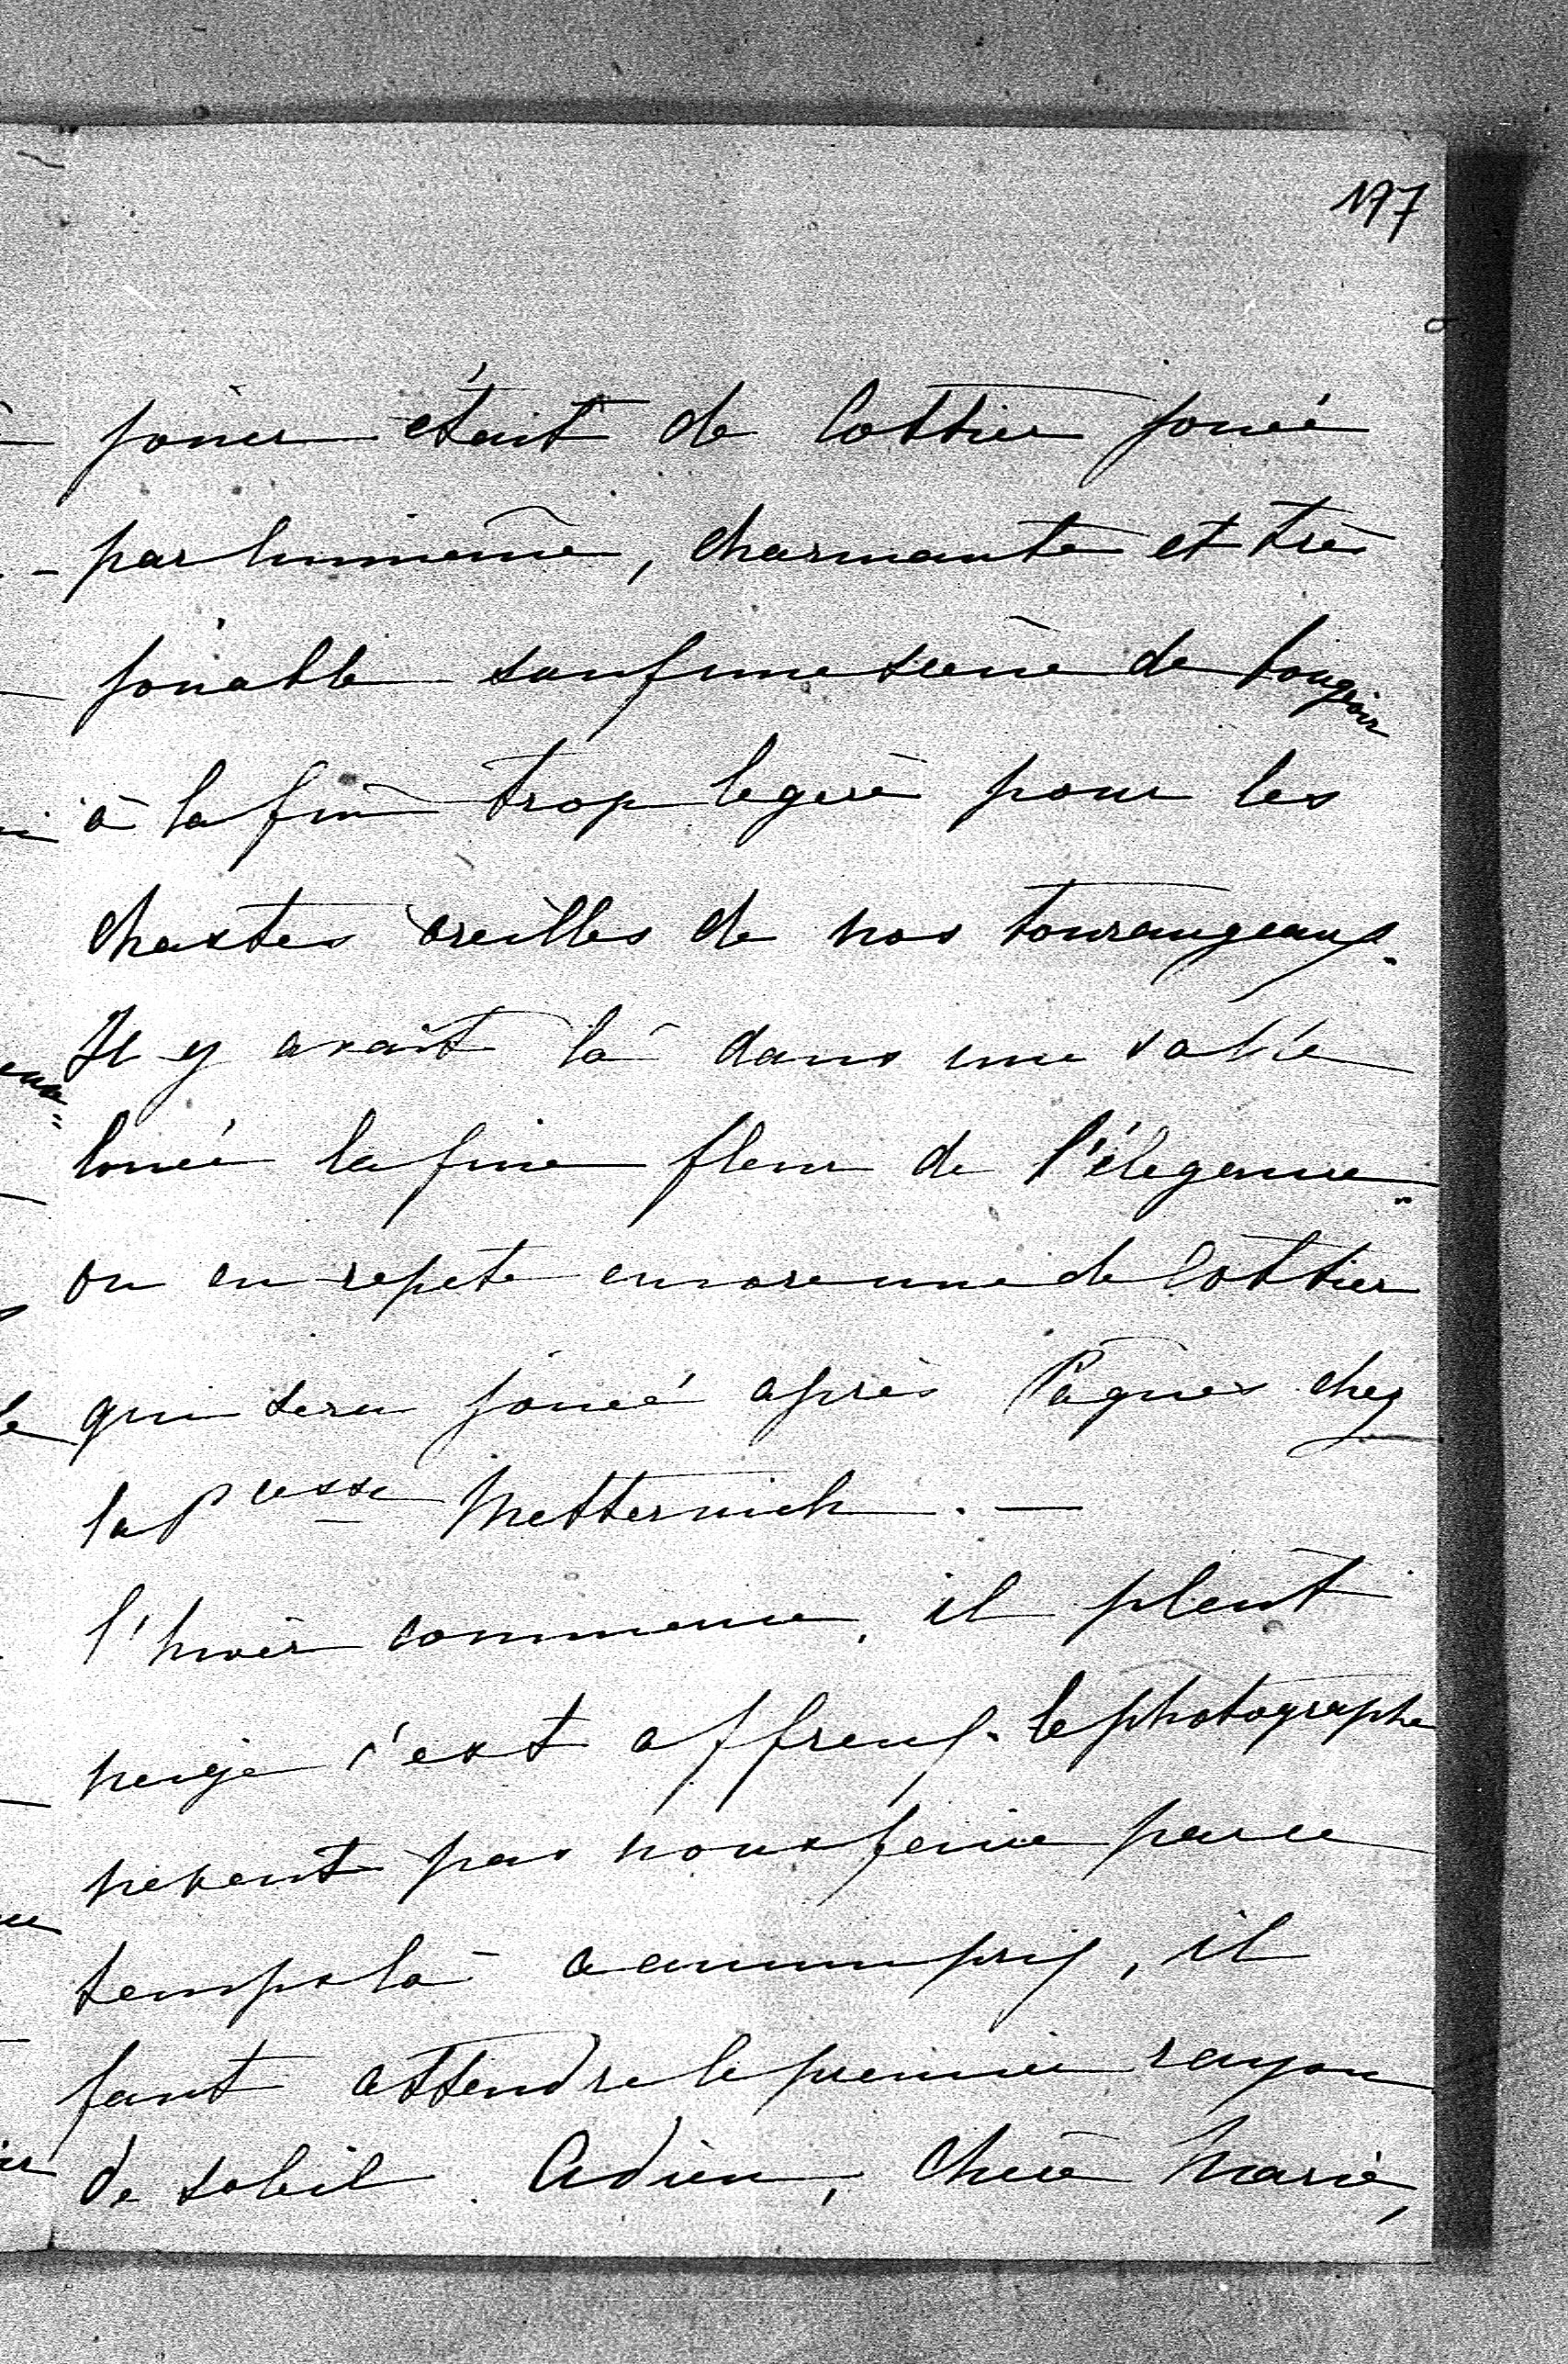 197
jouer était de Cottier jouée
par luimême, charmante et très
jouable sauf une scène de bougeoir
à la fin trop legère pour les
chastes oreilles de nos tourangeaux.
Il y avait là dans une salle
louée la fine fleur de l'élegance.
on en repete encore une de Cottier
qui sera jouée après Pâques chez
la Pcesse Metternich. —
l'hiver commence, il pleut
neige c'est affreux. le photographe
neveut pas nous faire par ce
temps là a aucun prix, il
faut attendre le premier rayon
de soleil. Adieu, chère Marie,